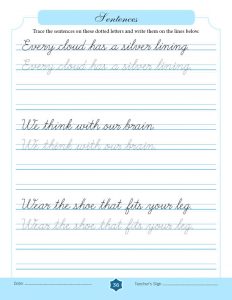 Sentences
Trace the sentences on these dotted letters and write them on the lines below.
Every cloud has a silver lining.
Every cloud has a silver lining.
We think with our brain.
We think with our brain.
Wear the shoe that fits your leg.
Wear the shoe that fits your leg.
Date: 36 Teacher's Sign